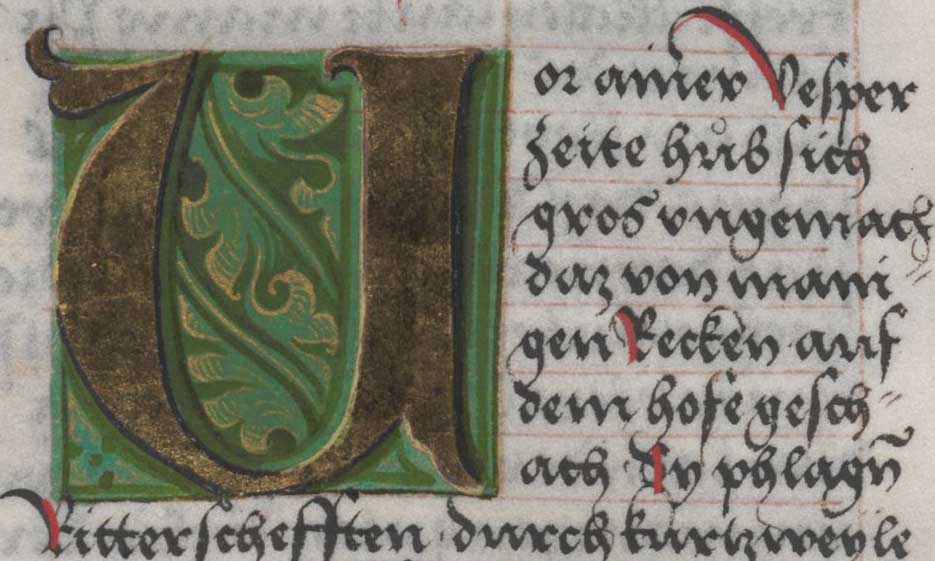 Vor ainer Vesper
zeite hůb sich
gros vngemach
daz von mani-
gen Recken auf
dem hofe gesch-
ach Sy phlagn̄
Ritterschefften durch kurtzweyle